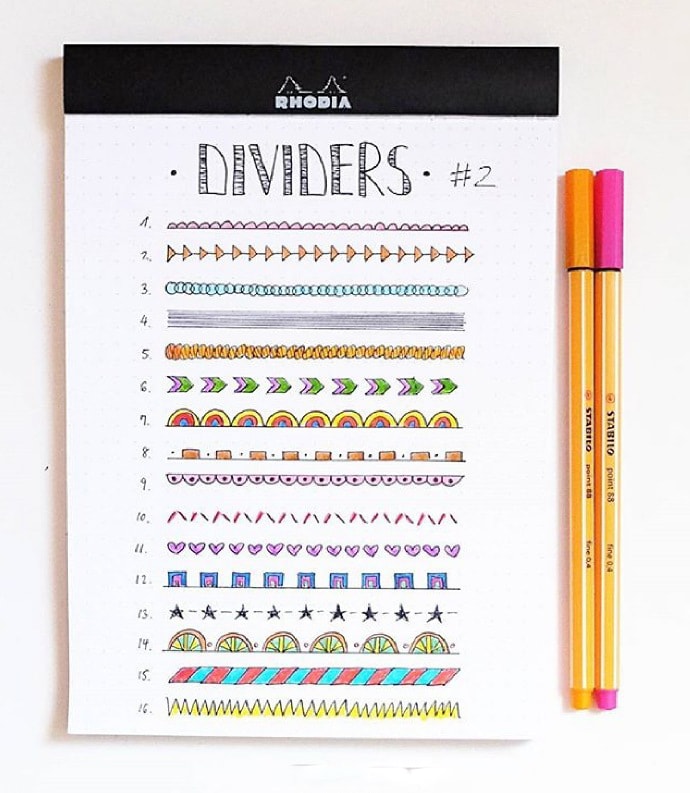 RHODIA
· DIVIDERS · #2
1.
2.
3.
4.
5.
6.
7.
8.
9.
10.
11.
12.
13.
14.
15.
16.
STABILO point 88 fine 0.4
STABILO point 88 fine 0.4